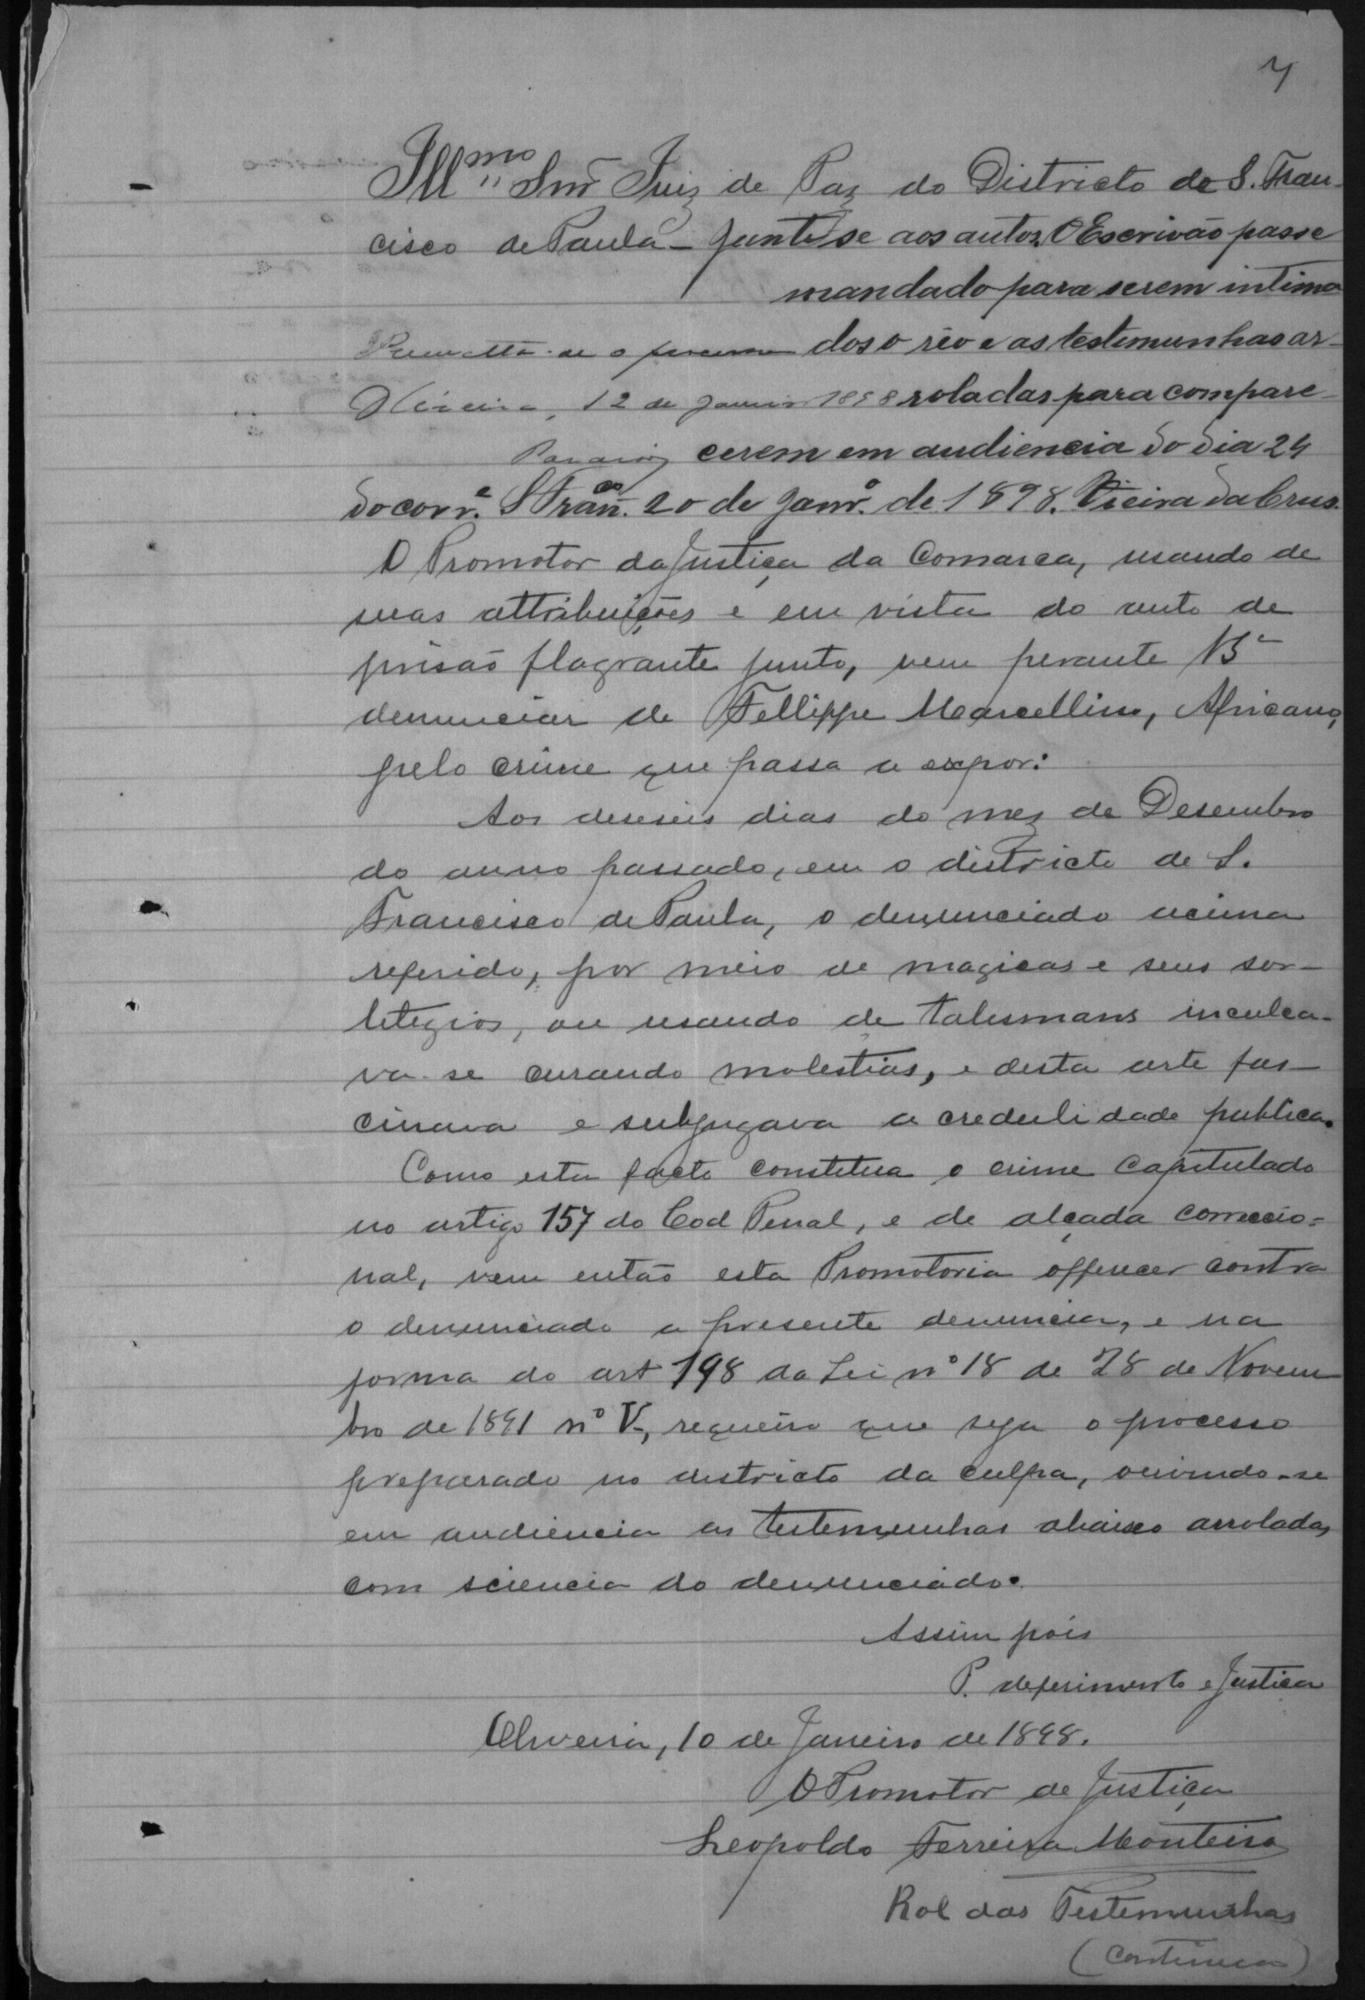 4
Illmo Snr Juiz de Paz do Districto de S. Fran-
cisco de Paula - Junte-se aos autos. O Escrivão passe
mandado para serem intima
Remetta-se o processo dos o réo e as testemunhas ar-
Oliveira, 12 de Janeiro 1898 roladas para compare-
cerem em audiencia do dia 24
do corre. S Francº. 20 de Janrº. de 1898. Vieira da Crus.
O Promotor da Justiça da Comarca, usando de
suas attribuições e em vista do auto de
prisão flagrante junto, vem perante Vª
denunciar de Fellippe Marcellino, Africano,
pelo crime que passa a expor:
Aos deseseis dias do mez de Desembro
do anno passado, em o districto de S.
Francisco de Paula, o denunciado acima
referido, por meio de magicas e seus sor-
tilegios, ou usando de talismans inculca-
va-se curando molestias, e desta arte fas-
cinava e subjugava a credulidade publica.
Como este facto constitua o crime capitulado
no artigo 157 do Cod Penal, e de alçada correccio=
nal, vem então esta Promotoria offerecer contra
o denunciado a presente denuncia, e na
forma do art 198 da Lei nº 18 de 28 de Novem
bro de 1891 nº V, requeiro que seja o processo
preparado no districto da culpa, ouvindo-se
em audiencia as testemunhas abaixo arroladas,
com sciencia do denunciado.
Assim pois
P. deferimento e Justiça
Oliveira, 10 de Janeiro de 1898.
O Promotor de Justiça
Leopoldo Ferreira Monteiro
Rol das Testemunhas
(Continua)